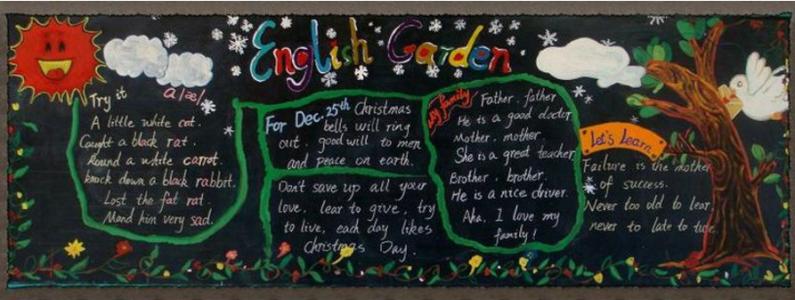 English Garden
Try it
a /æ/
A little white cat.
Caught a black rat.
Round a white carrot.
knock down a black rabbit.
Lost the fat rat.
Mand him very sad.
For Dec. 25th Christmas
bells will ring
out. good will to men
and peace on earth.
Don't save up all your
love, lear to give, try
to live, each day likes
Christmas Day.
My family
Father. father
He is a good doctor
Mother. mother.
She is a great teacher
Brother. brother.
He is a nice driver.
Aha, I love my
family!
Let's Learn
Failure is the mother
of success.
Never too old to lear,
never to late to